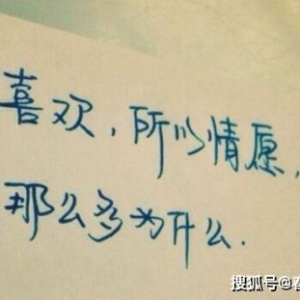 喜欢，所以情愿，
那么多为什么.
搜狐号@